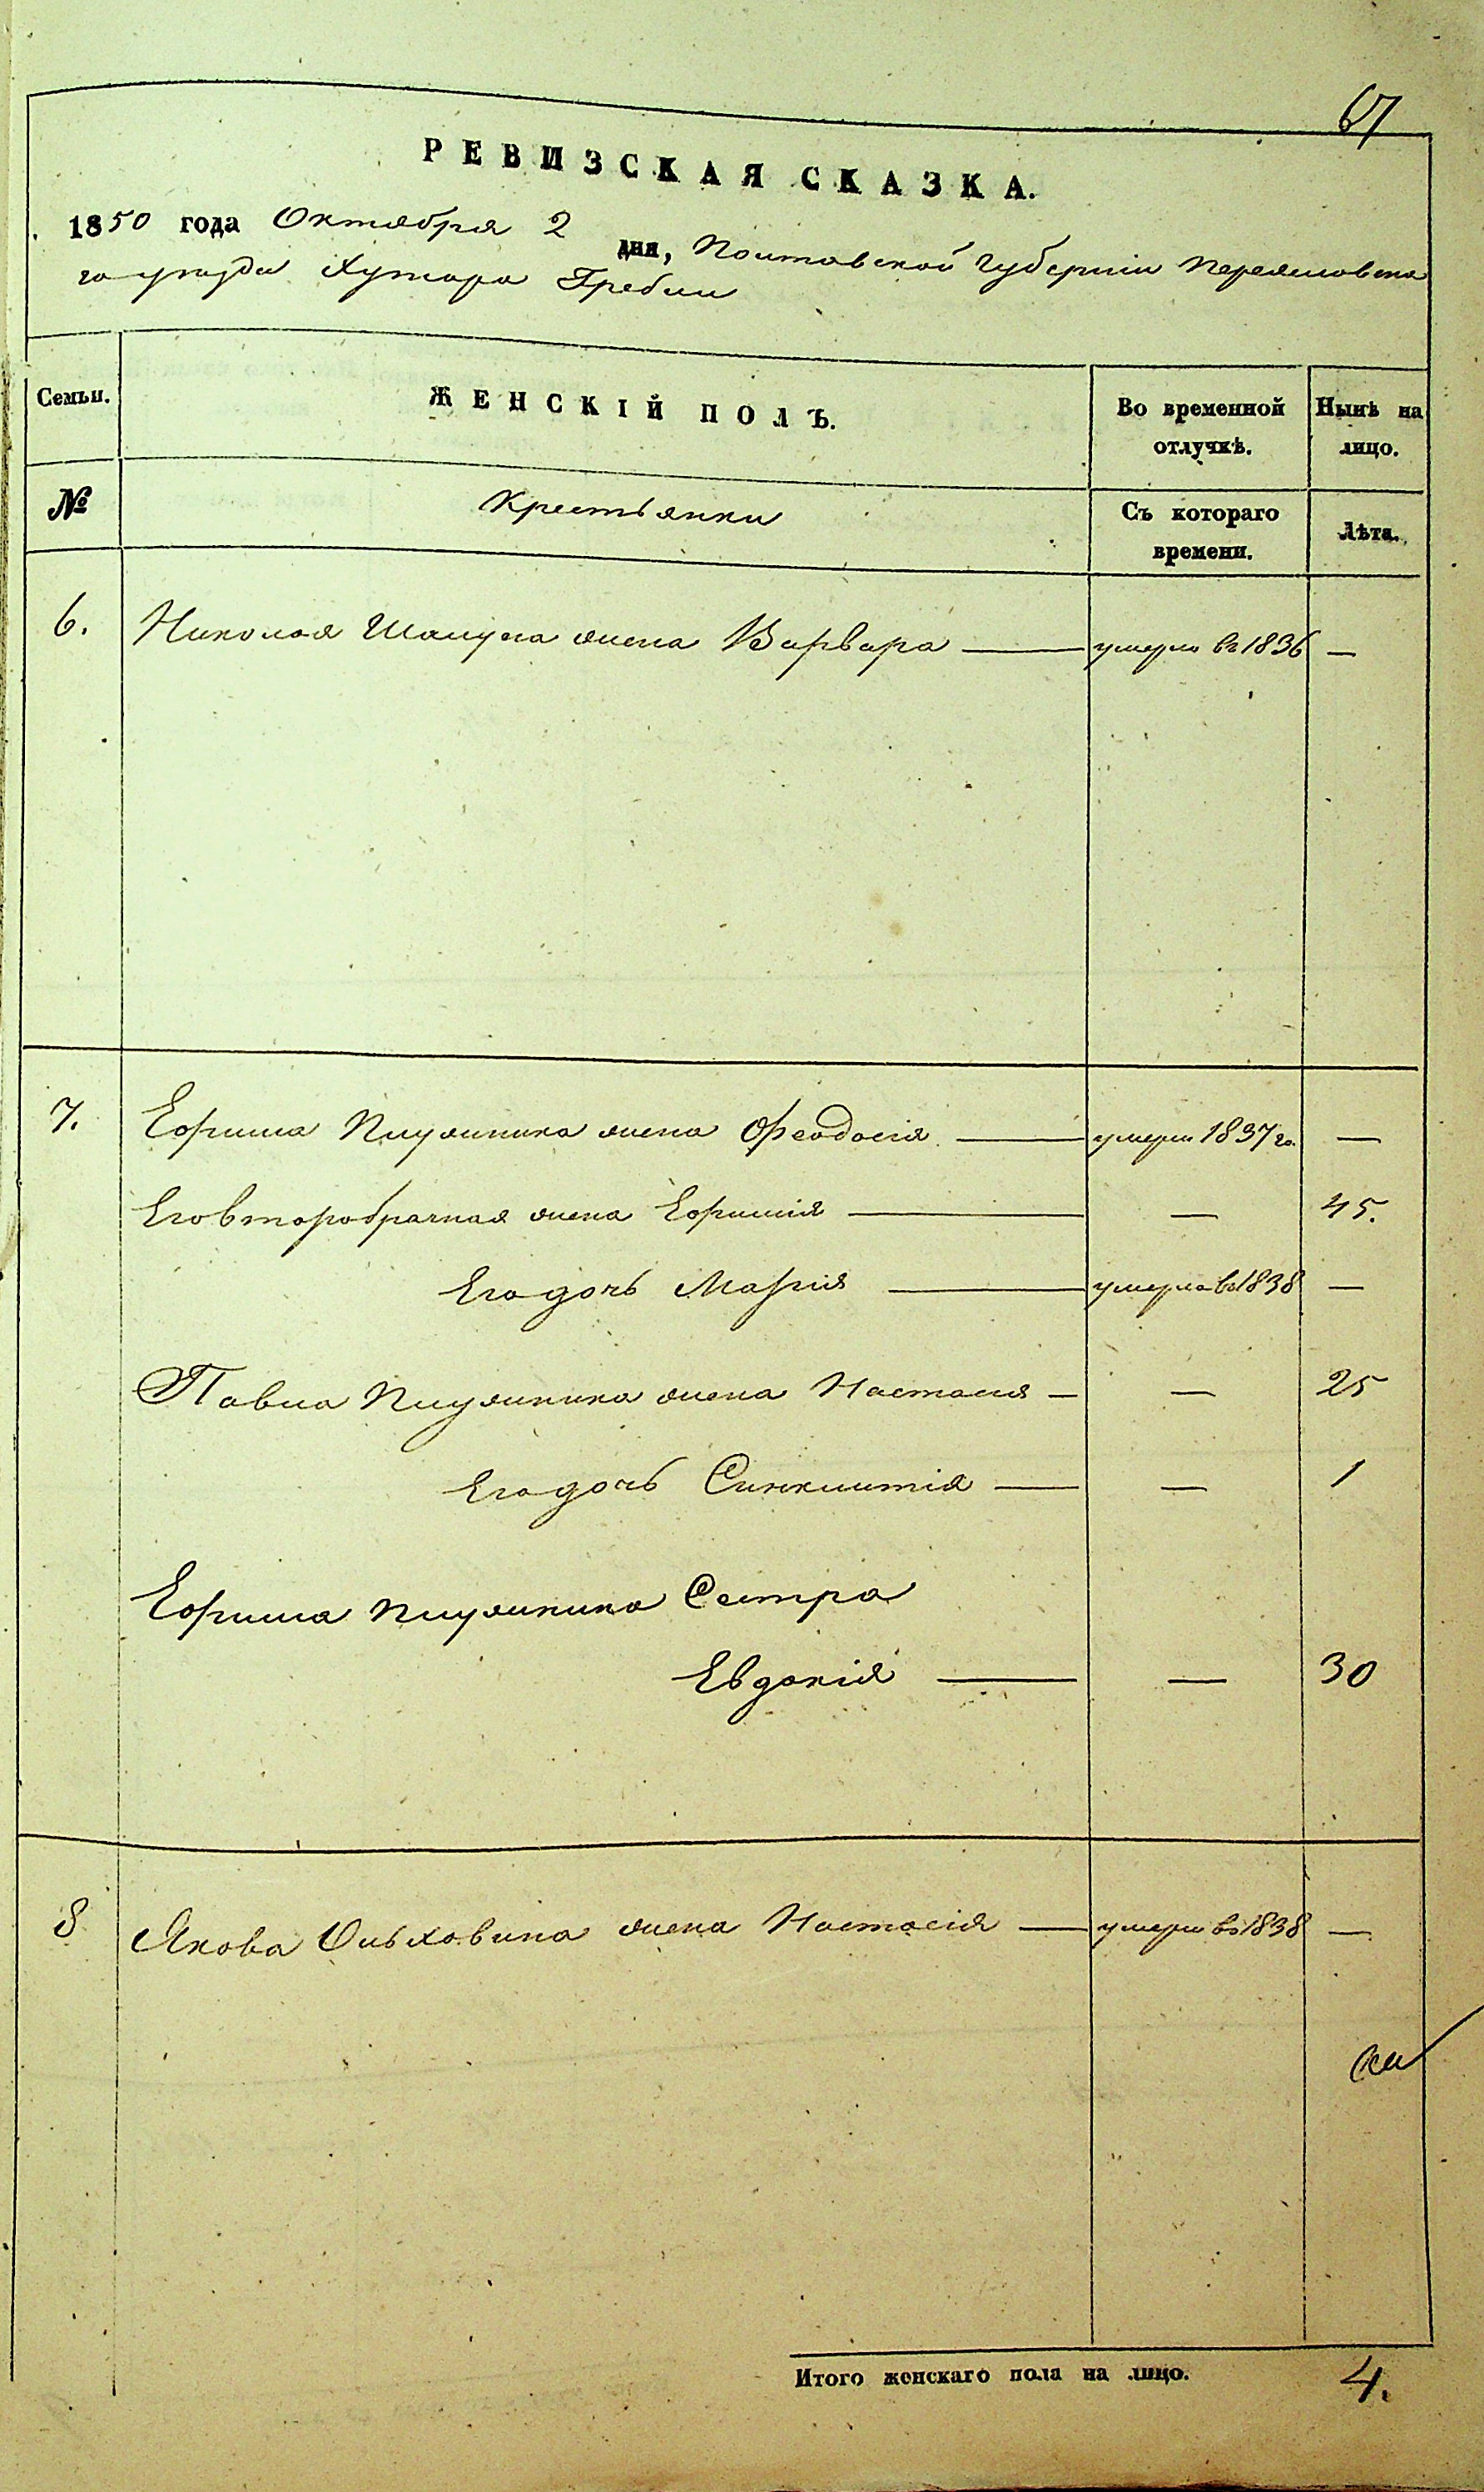 67
РЕВИЗСКАЯ СКАЗКА.
1850 года Октября 2 дня, Полтавской Губерніи Переяславска
го уезда Хутора Гребли
Семьи.
ЖЕНСКІЙ ПОЛЪ.
Во временной отлучкѣ.
Нынѣ на лицо.
№
Крестьянки
Съ котораго времени.
Лѣта.
6. Николая жена Варвара — умерла въ 1836 —
7. Ефима жена Феодосія — умерла 1837 го. —
Его второбрачная жена Ефимія — — 45.
Его дочь Марія — умерла въ 1838 —
Павла жена Настасія — — 25
Его дочь Синклитія — — 1
Ефима Сестра
Евдокія — — 30
8 Якова Ольховика жена Настасія — умерла въ 1838 —
Итого женскаго пола на лицо. 4.